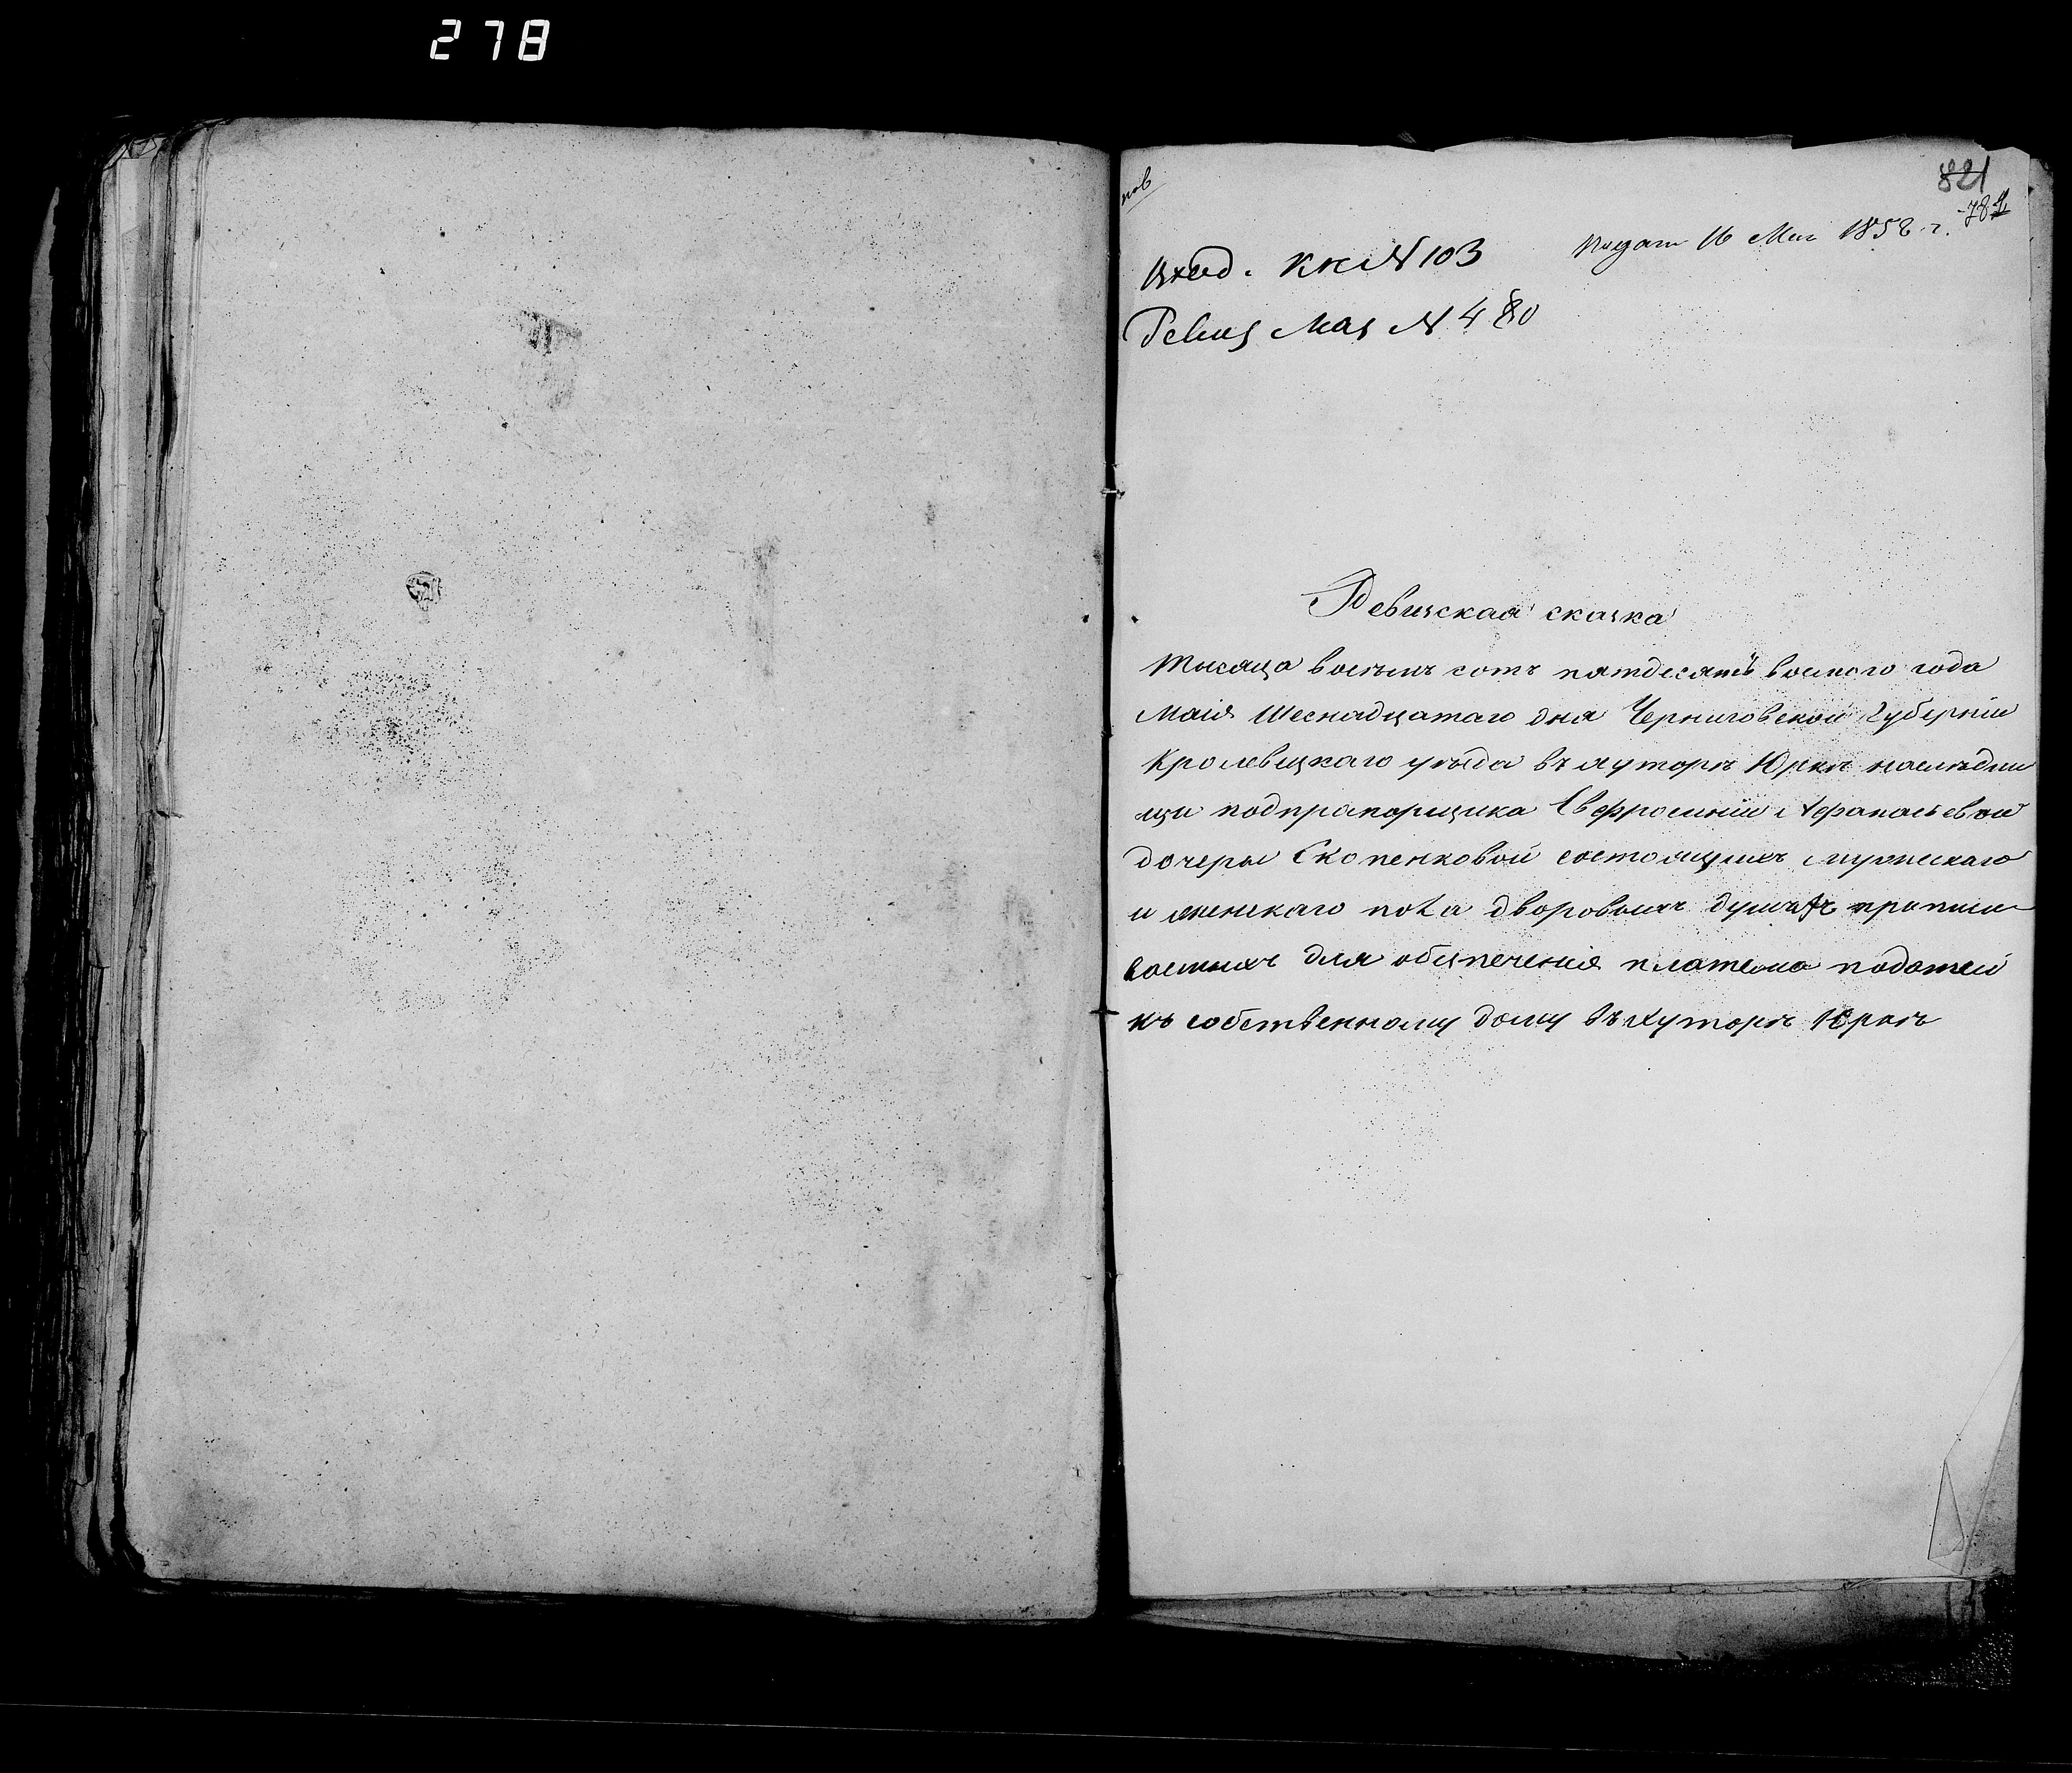 278
821
781
нов
Подат 16 Мая 1858 г.
Вход. кн. № 103
Ревиз Маз № 480
Ревизская сказка
тысяча восемь сотъ пятдесятъ восмого года
Маія Шеснадцатаго дня Черниговской Губерніи
Кролевецкаго уезда въ хуторе Юрке наследни
цы подпрапорщика Евфросиніи Афанасьевой
дочеры Скопенковой состоящихъ мужескаго
и женскаго пола дворовыхъ душахъ приписи
ваемыхъ для обезпеченія платежа податей
къ собственному дому въ хуторе Юрке